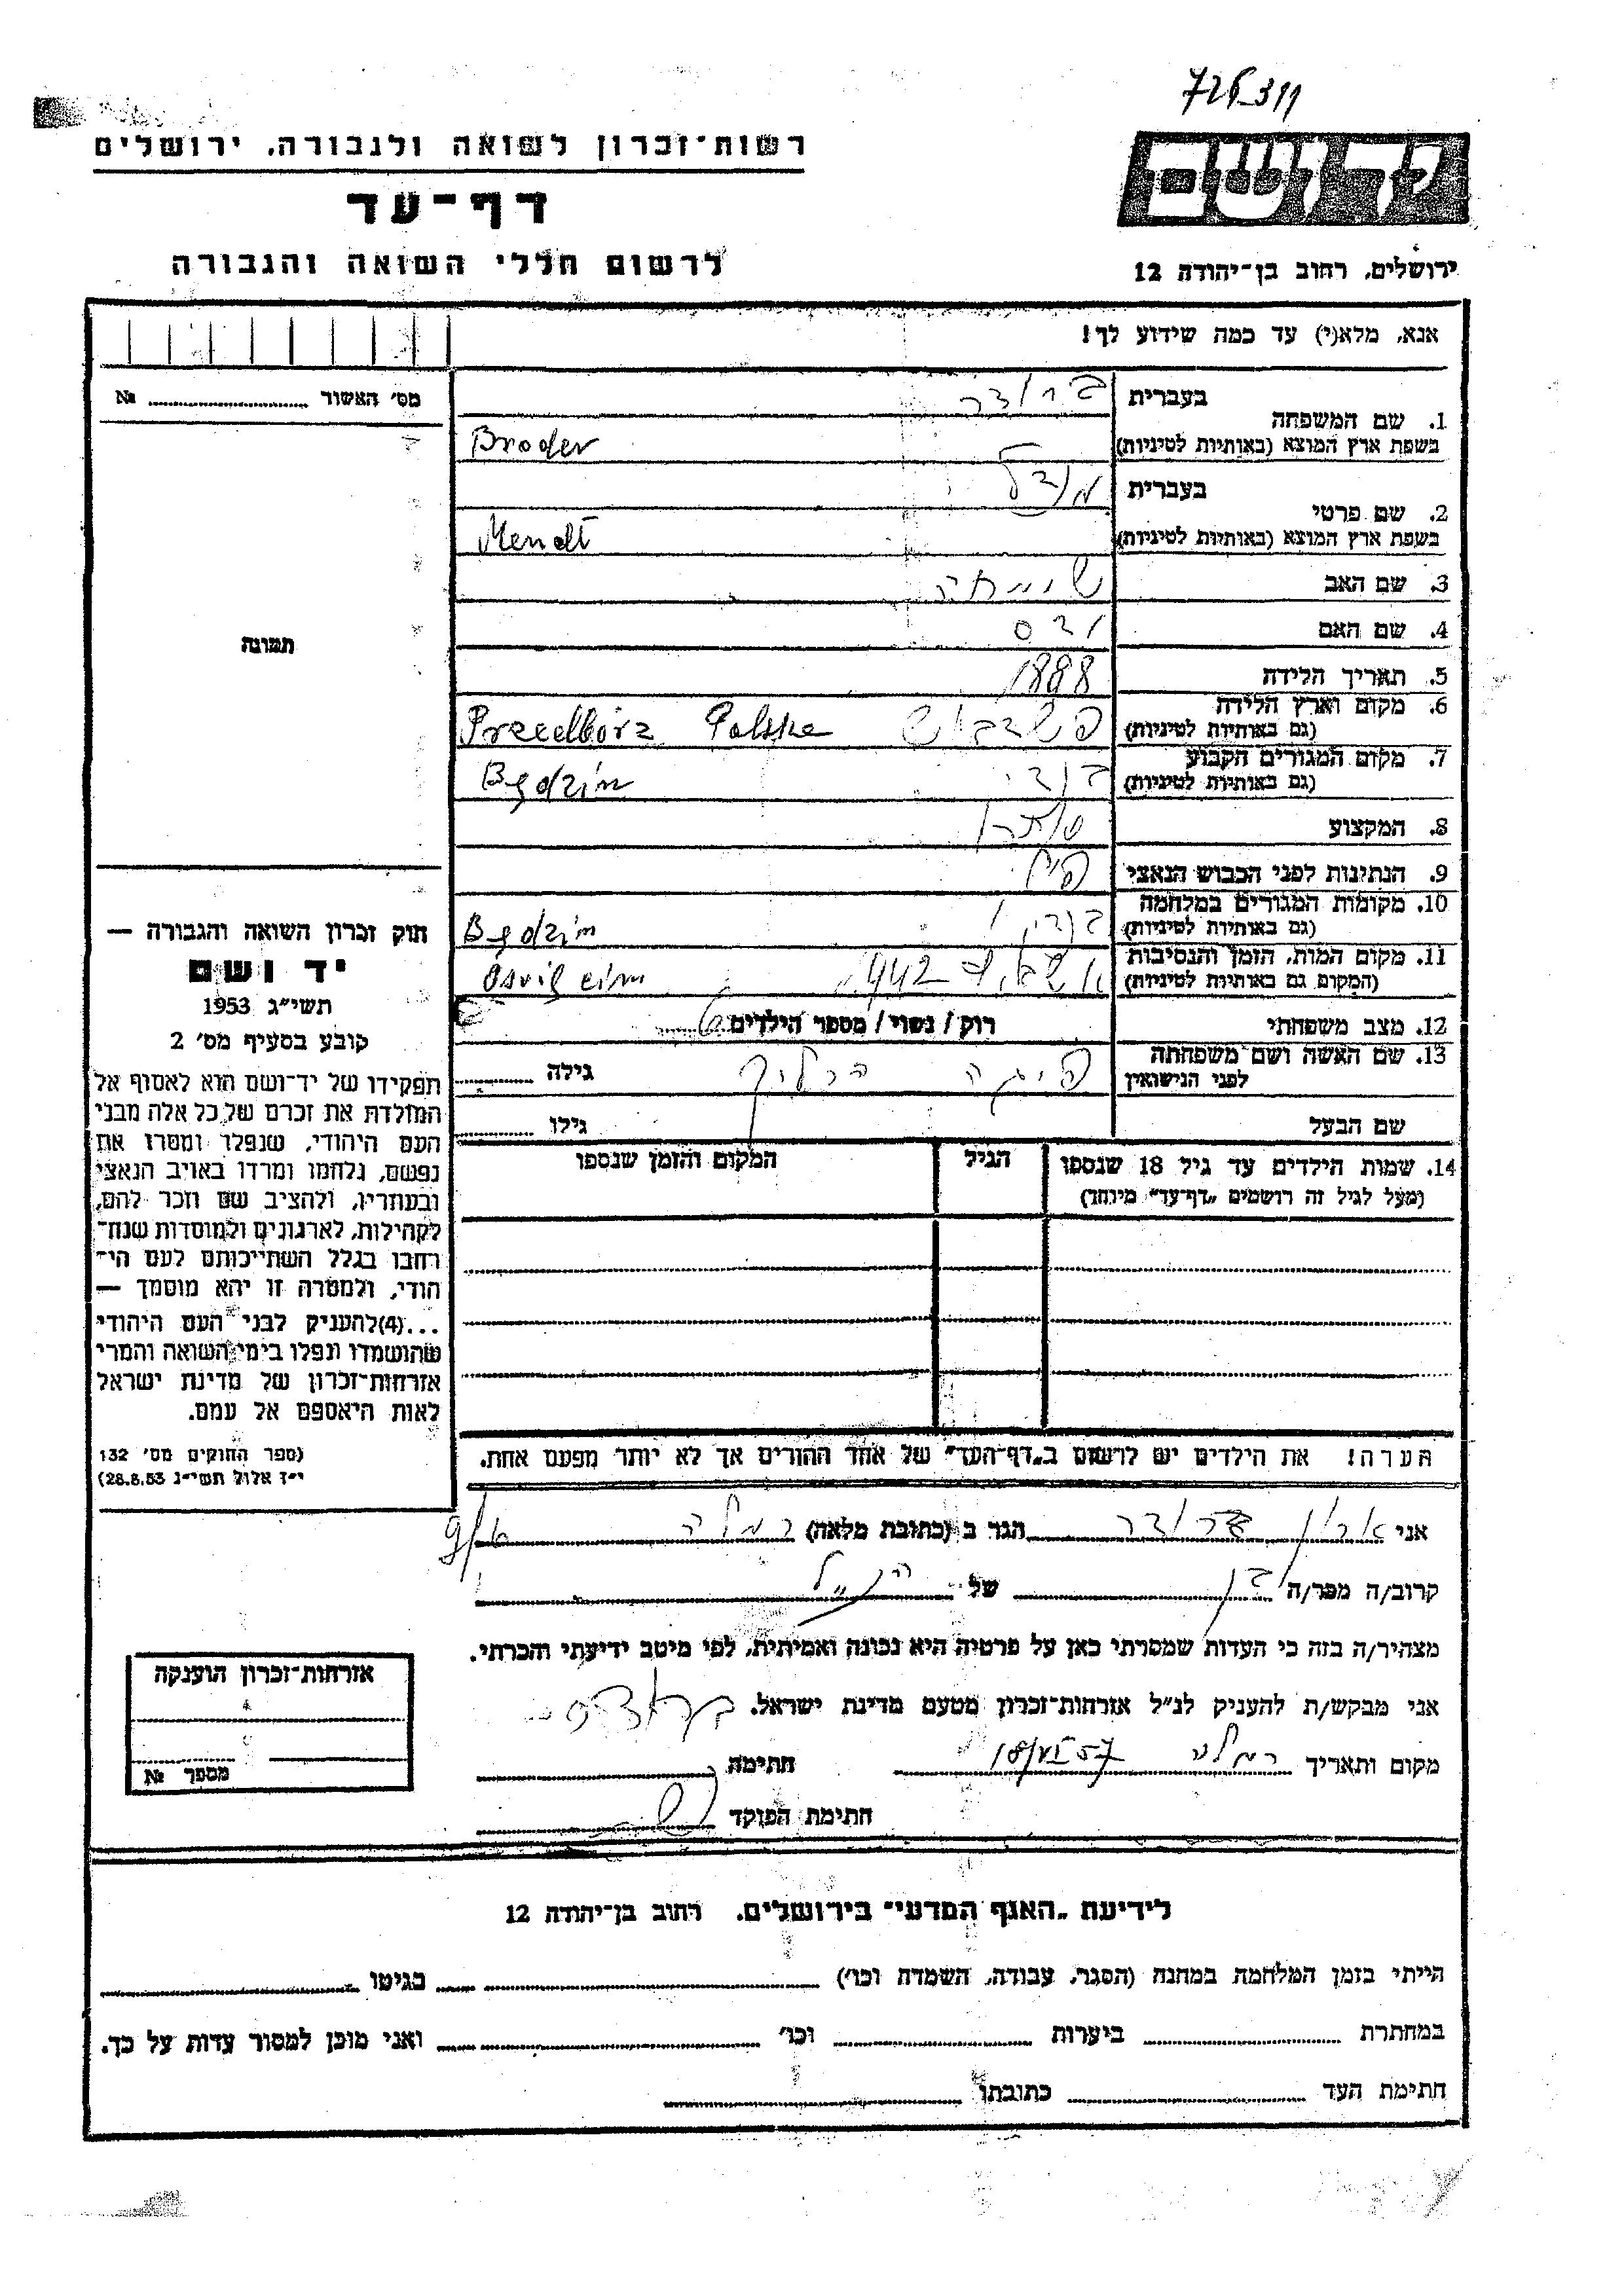 726311
רשות־זכרון לשואה ולגבורה, ירושלים
דף־עד
לרשום חללי השואה והגבורה
ירושלים, רחוב בן־יהודה 12
אנא, מלא(י) עד כמה שידוע לך!
מס׳ האשור № 
1. שם המשפחה בעברית ברודר
בשפת ארץ המוצא (באותיות לטיניות) Broder
2. שם פרטי בעברית מנדל
בשפת ארץ המוצא (באותיות לטיניות) Mendl
3. שם האב שימחה
4. שם האם
5. תאריך הלידה 1888
6. מקום וארץ הלידה
(גם באותיות לטיניות) Przedbórz Polska
7. מקום המגורים הקבוע
(גם באותיות לטיניות) Będzin
8. המקצוע סוחר
9. הנתינות לפני הכבוש הנאצי
10. מקומות המגורים במלחמה
(גם באותיות לטיניות) Będzin
11. מקום המות, הזמן והנסיבות
(המקום גם באותיות לטיניות) 942
12. מצב משפחתי רוק/ נשוי/ מספר הילדים 6
13. שם האשה ושם משפחתה
לפני הנישואין גילה
שם הבעל גילו
14. שמות הילדים עד גיל 18 שנספו הגיל המקום והזמן שנספו
(מעל לגיל זה רושמים „דף־עד״ מיוחד)
הערה! את הילדים יש לרשום ב„דף־העד״ של אחד ההורים אך לא יותר מפעם אחת.
תמונה
חוק זכרון השואה והגבורה —
יד ושם
תשי״ג 1953
קובע בסעיף מס׳ 2
תפקידו של יד־ושם הוא לאסוף אל
המולדת את זכרם של כל אלה מבני
העם היהודי, שנפלו ומסרו את
נפשם, נלחמו ומרדו באויב הנאצי
ובעוזריו, ולהציב שם וזכר להם,
לקהילות, לארגונים ולמוסדות שנח־
רחבו בגלל השתייכותם לעם הי־
הודי, ולמטרה זו יהא מוסמך —
...(4)להעניק לבני העם היהודי
שהושמדו ונפלו בימי השואה והמרי
אזרחות־זכרון של מדינת ישראל
לאות היאספם אל עמם.
(ספר החוקים מס׳ 132
י״ז אלול תשי״ג 28.8.53)
אני אהרן ברודר הגר ב (כתובת מלאה) רמלה
קרוב/ה מכר/ה בן של הנ״ל
מצהיר/ה בזה כי העדות שמסרתי כאן על פרטיה היא נכונה ואמיתית, לפי מיטב ידיעתי והכרתי.
אני מבקש/ת להעניק לנ״ל אזרחות־זכרון מטעם מדינת ישראל.
מקום ותאריך רמלה 18/VI 57 חתימה
חתימת הפוקד
אזרחות־זכרון הוענקה
מספר №
לידיעת „האגף המדעי״ בירושלים. רחוב בן־יהודה 12
הייתי בזמן המלחמה במחנה (הסגר, עבודה, השמדה וכו׳) בגיטו
במחתרת ביערות וכו׳ ואני מוכן למסור עדות על כך.
חתימת העד כתובתו